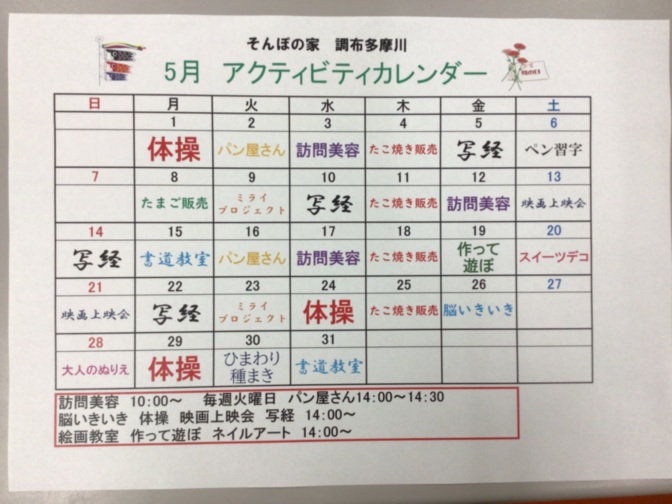 そんぽの家 調布多摩川
5月 アクティビティカレンダー
日 月 火 水 木 金 土
1 2 3 4 5 6
体操 パン屋さん 訪問美容 たこ焼き販売 写経 ペン習字
7 8 9 10 11 12 13
たまご販売 ミライプロジェクト 写経 たこ焼き販売 訪問美容 映画上映会
14 15 16 17 18 19 20
写経 書道教室 パン屋さん 訪問美容 たこ焼き販売 作って遊ぼ スイーツデコ
21 22 23 24 25 26 27
映画上映会 写経 ミライプロジェクト 体操 たこ焼き販売 脳いきいき
28 29 30 31
大人のぬりえ 体操 ひまわり種まき 書道教室
訪問美容 10:00～ 毎週火曜日 パン屋さん14:00～14:30
脳いきいき 体操 映画上映会 写経 14:00～
絵画教室 作って遊ぼ ネイルアート 14:00～